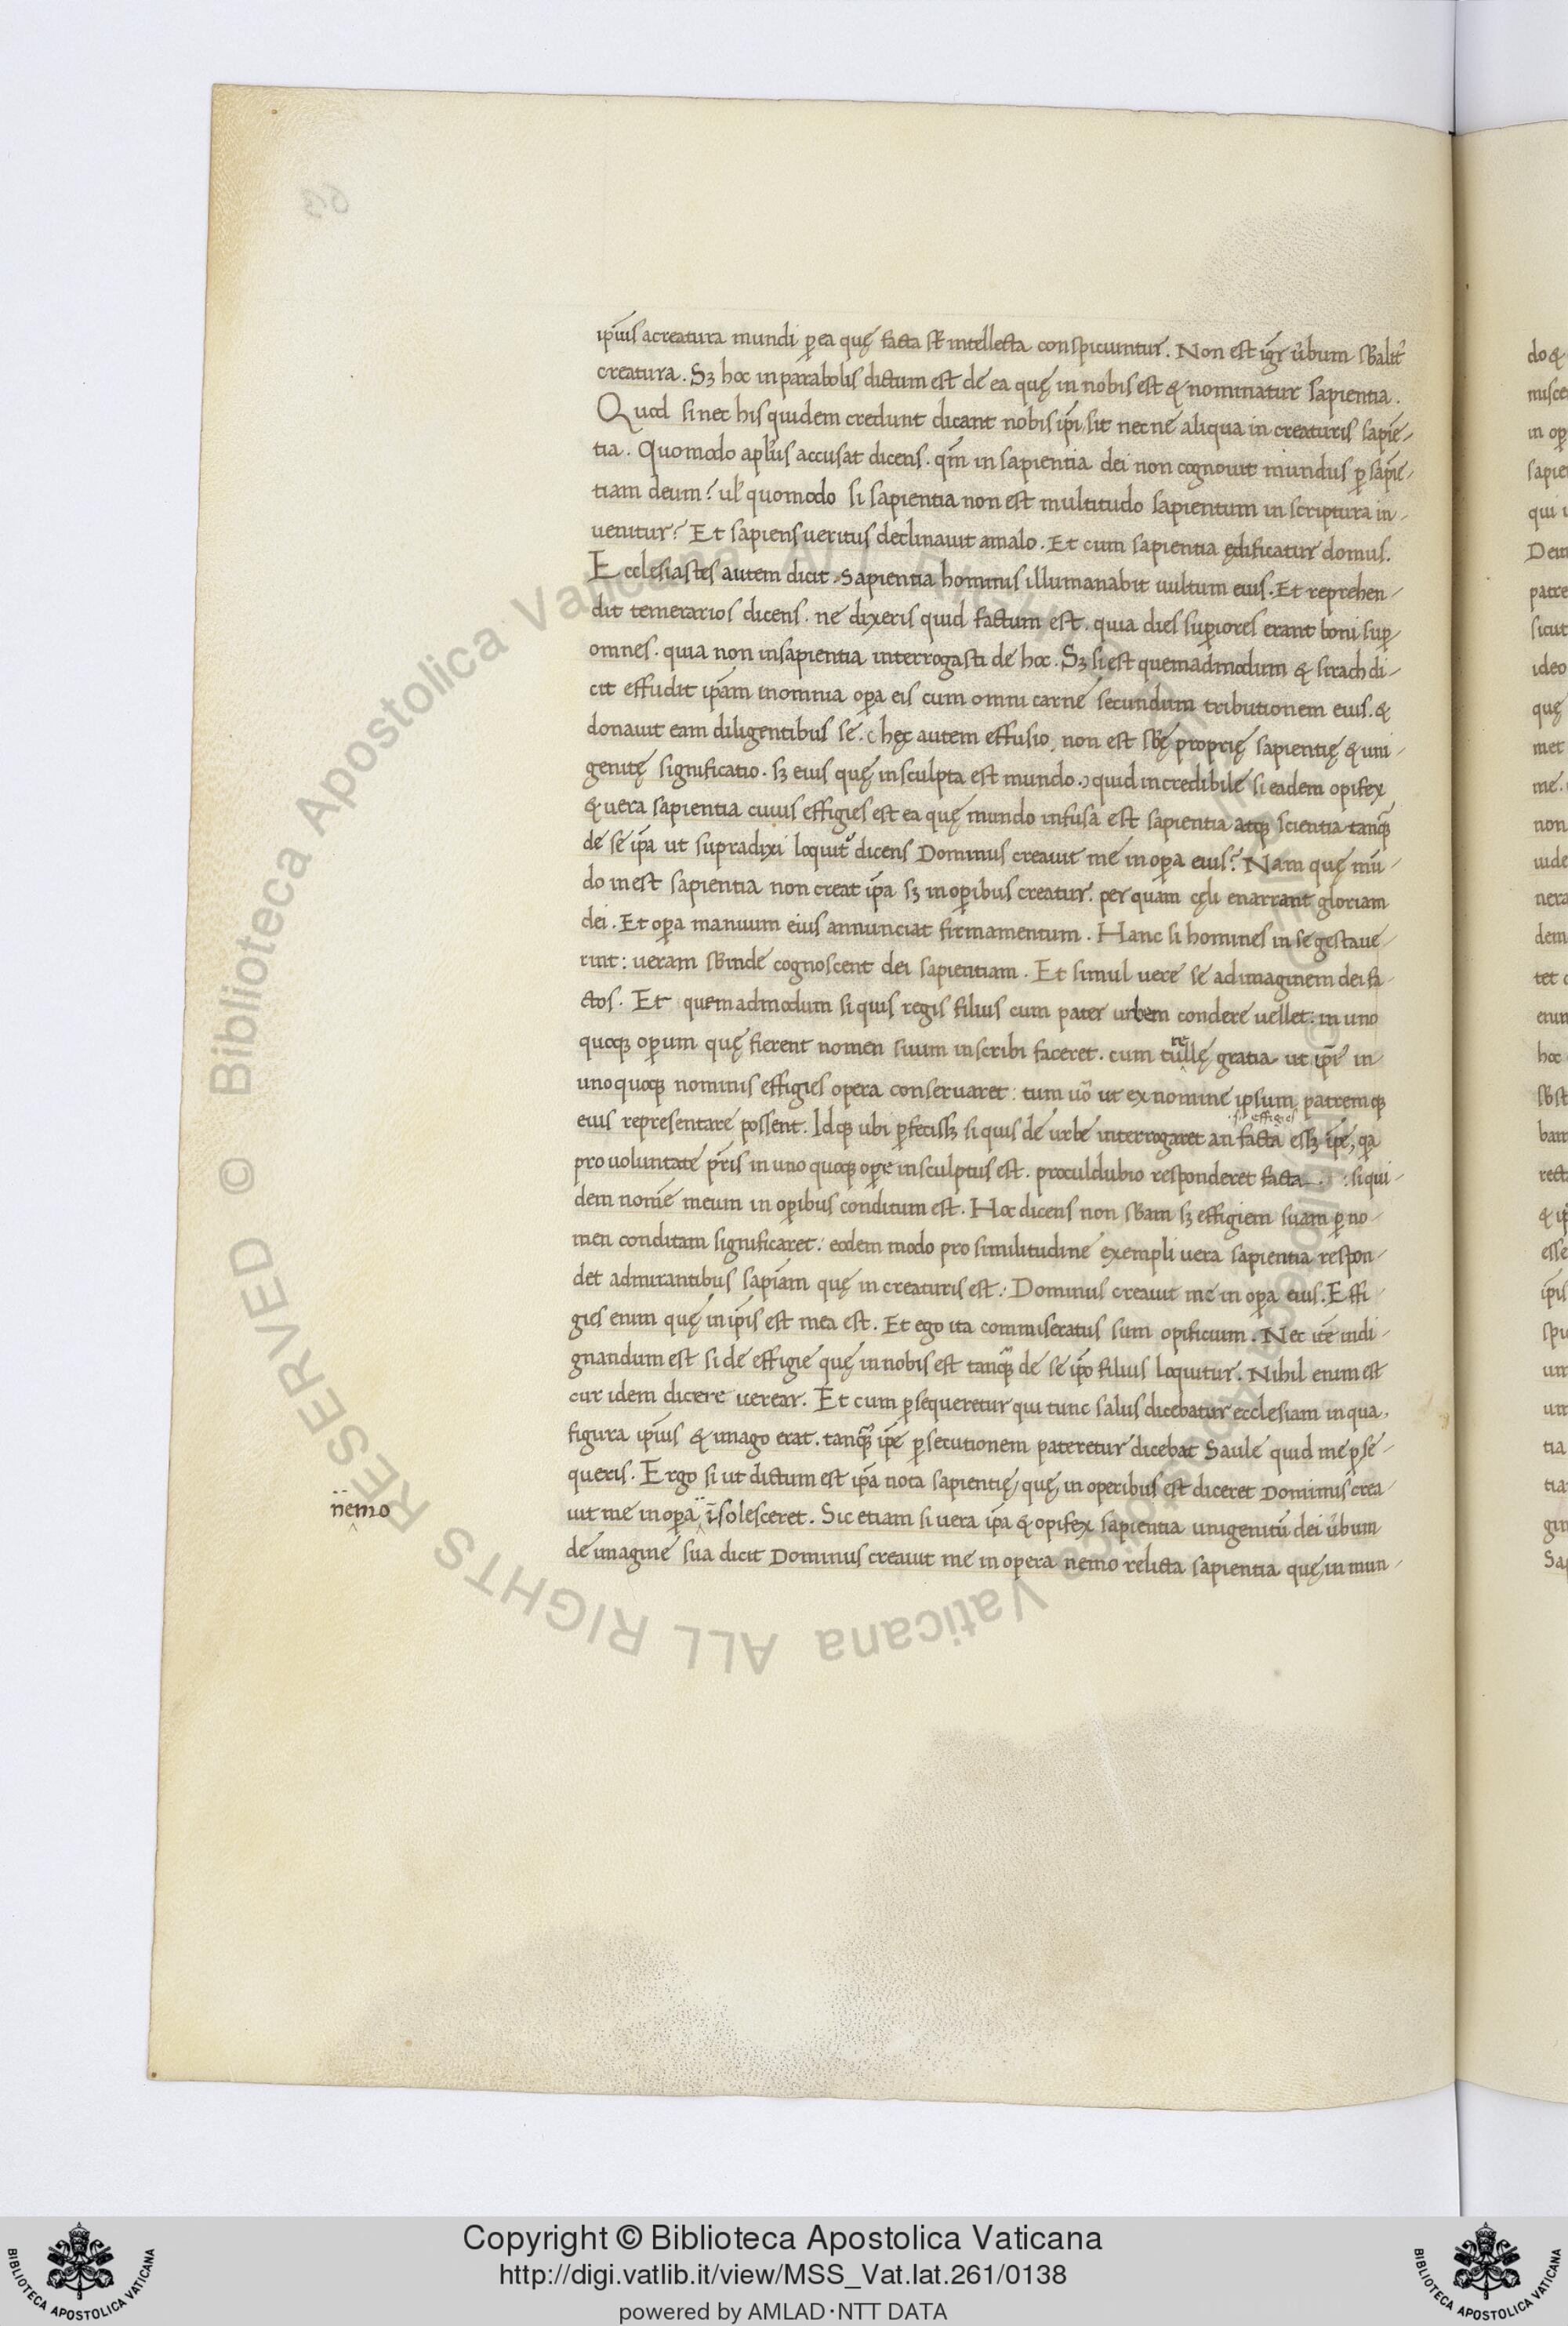 ip̄ius a creatura mundi p̱ ea quę facta st̄ intellecta conspicuuntur. Non est igr̄ u̓bum sb̄alit̓
creatura. Sꝫ hoc in parabolis dictum est de ea quę in nobis est & nominatur sapientia.
Quod si nec his quidem credunt dicant nobis ip̄i sit nec ne aliqua in creaturis sapiē-
tia. Quomodo apl̓us accusat dicens. qm̄ in sapientia dei non cognouit mundus p̱ sapiē-
tiam deum? ul̓ quomodo si sapientia non est multitudo sapientum in scriptura in-
uenitur? Et sapiens ueritus declinauit a malo. Et cum sapientia ędificatur domus.
Ecclesiastes autem dicit. Sapientia hominis illumanabit uultum eius. Et reprehen-
dit temerarios dicens. ne dixeris quid factum est. quia dies sup̱iores erant boni sup̱
omnes. quia non in sapientia interrogasti de hoc. Sꝫ si est quemadmodum & sirach di-
cit effudit ip̄am in omnia op̱a eis cum omni carne secundum tributionem eius. &
donauit eam diligentibus se. hęc autem effusio, non est sb̄ę proprię sapientię & uni-
genitę significatio. sꝫ eius quę insculpta est mundo. quid incredibile si eadem opifex
& uera sapientia cuius effigies est ea quę mundo infusa est sapientia atqꝫ scientia tanqꝫ
de se ip̄a ut supradixi loquit᷑ dicens Dominus creauit me in op̱a eius? Nam quę mū-
do inest sapientia non creat ip̄a sꝫ in op̱ibus creatur. per quam cęli enarrant gloriam
dei. Et op̱a manuum eius annunciat firmamentum. Hanc si homines in se gestaue-
rint: ueram sb̄inde cognoscent dei sapientiam. Et simul uere se ad imaginem dei fa-
ctos. Et quemadmodum si quis regis filius cum pater urbem condere uellet. in uno
quoqꝫ op̱um quę fierent nomen suum inscribi faceret. cum tutellę gratia ut ip̄i in
unoquoqꝫ nominis effigies opera conseruaret: tum uo̓ ut ex nomine ipsum patremqꝫ
.s. effigies
eius representare possent. Idqꝫ ubi p̱fecissꝫ si quis de urbe interrogaret an facta essꝫ ip̄e, qa
pro uoluntate pr̄is in uno quoqꝫ op̱e insculptus est. proculdubio responderet facta. : siqui-
dem nomē meum in op̱ibus conditum est. Hoc dicens non sb̄am sꝫ effigiem suam p̱ no-
men conditam significaret: eodem modo pro similitudine exempli uera sapientia respon-
det admirantibus sapiam̄ quę in creaturis est: Dominus creauit me in op̱a eius. Effi-
gies enim quę in ip̄is est mea est. Et ego ita commiseratus sum opificium. Nec itē indi-
gnandum est si de effigie quę in nobis est tanqꝫ de se ip̄o filius loquitur. Nihil enim est
cur idem dicere uerear. Et cum p̱sequeretur qui tunc salus dicebatur ecclesiam in qua
figura ipius & imago erat. tanqꝫ ip̄e p̱secutionem pateretur dicebat Saule quid me p̱se-
queris. Ergo si ut dictum est ip̄a nota sapientię, quę in operibus est diceret Dominus crea-
nemo
uit me in op̱a īsolesceret. Sic etiam si uera ip̄a & opifex sapientia unigenitū dei u̓bum
de imagine sua dicit Dominus creauit me in opera nemo relicta sapientia quę in mun-
Copyright © Biblioteca Apostolica Vaticana
http://digi.vatlib.it/view/MSS_Vat.lat.261/0138
powered by AMLAD·NTT DATA